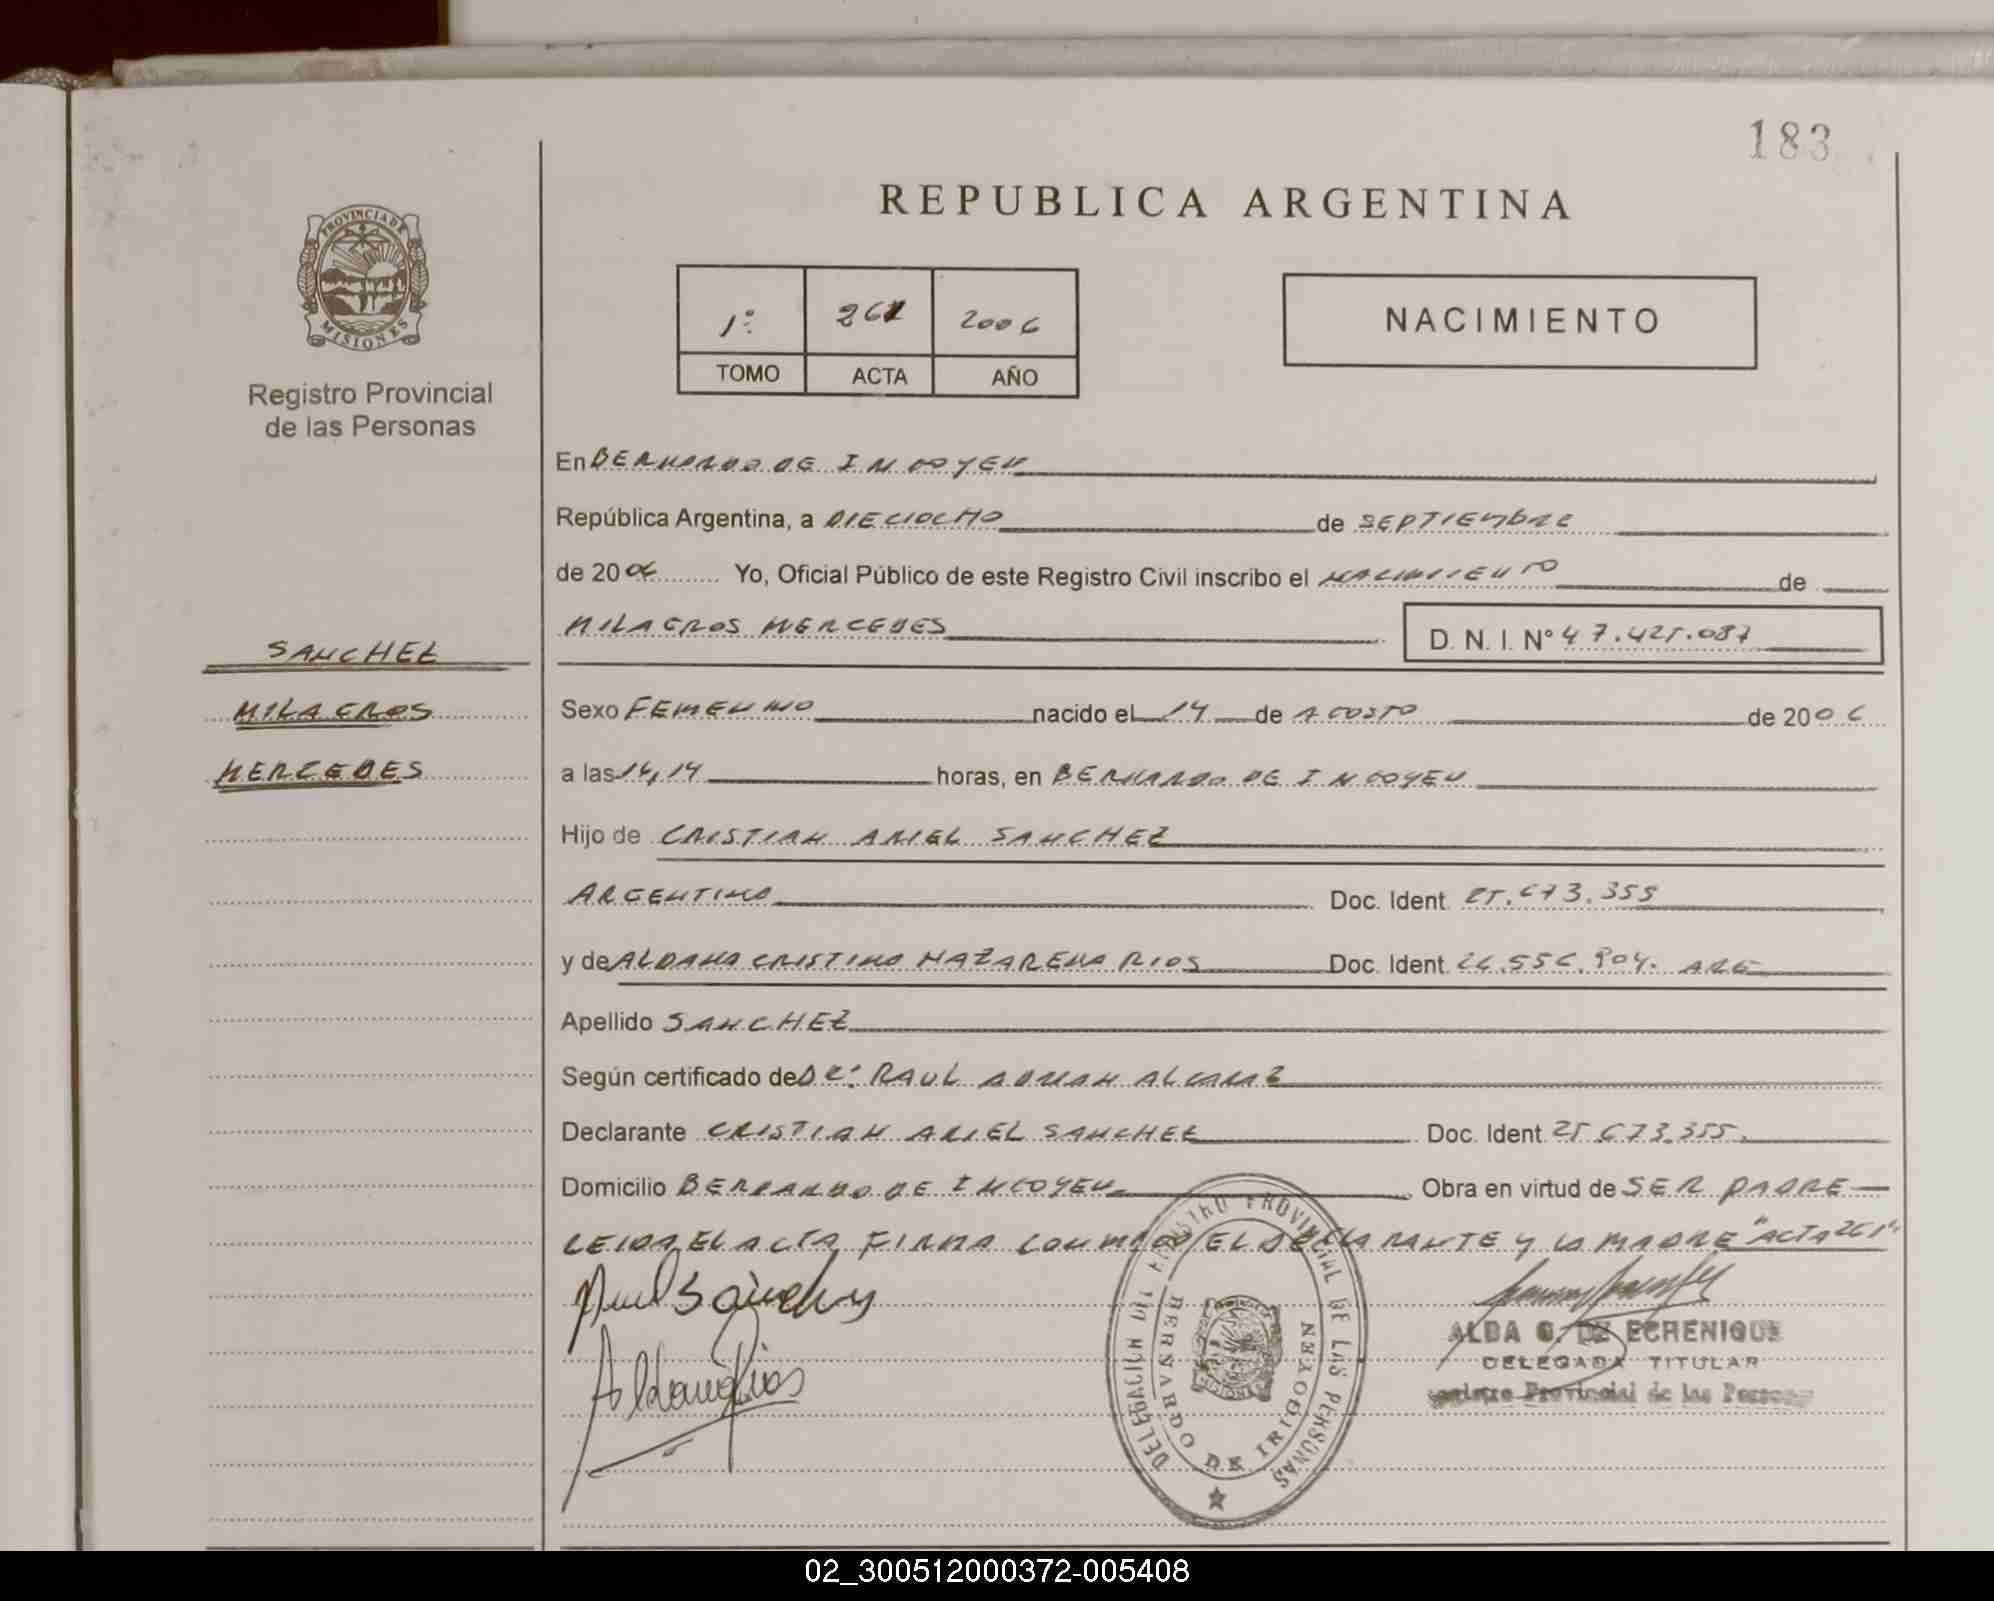 183
REPUBLICA ARGENTINA
PROVINCIA DE
MISIONES
Registro Provincial
de las Personas
1º 261 2006
TOMO ACTA AÑO
NACIMIENTO
En BERNARDO DE IRIGOYEN
República Argentina, a DIECIOCHO de SEPTIEMBRE
de 2006 Yo, Oficial Público de este Registro Civil inscribo el NACIMIENTO de
MILAGROS MERCEDES D. N. I. Nº 47.425.087
SANCHEZ
MILAGROS
MERCEDES
Sexo FEMENINO nacido el 14 de AGOSTO de 2006
a las 14,14 horas, en BERNARDO DE IRIGOYEN
Hijo de CRISTIAN ARIEL SANCHEZ
ARGENTINO Doc. Ident. 25.673.355
y de ALDANA CRISTINA NAZARENA RIOS Doc. Ident. 26.556.904. ARG
Apellido SANCHEZ
Según certificado de DR: RAUL ADRIAN ALCARAZ
Declarante CRISTIAN ARIEL SANCHEZ Doc. Ident. 25.673.355.
Domicilio BERNARDO DE IRIGOYEN Obra en virtud de SER PADRE
LEIDA EL ACTA FIRMA CONMIGO EL DECLARANTE Y LA MADRE "ACTA 261"
Aldana Rios
DELEGACION DEL REGISTRO PROVINCIAL DE LAS PERSONAS
BERNARDO DE IRIGOYEN
MISIONES
ALBA G. DE ECHENIQUE
DELEGADA TITULAR
Registro Provincial de las Personas
02_300512000372-005408